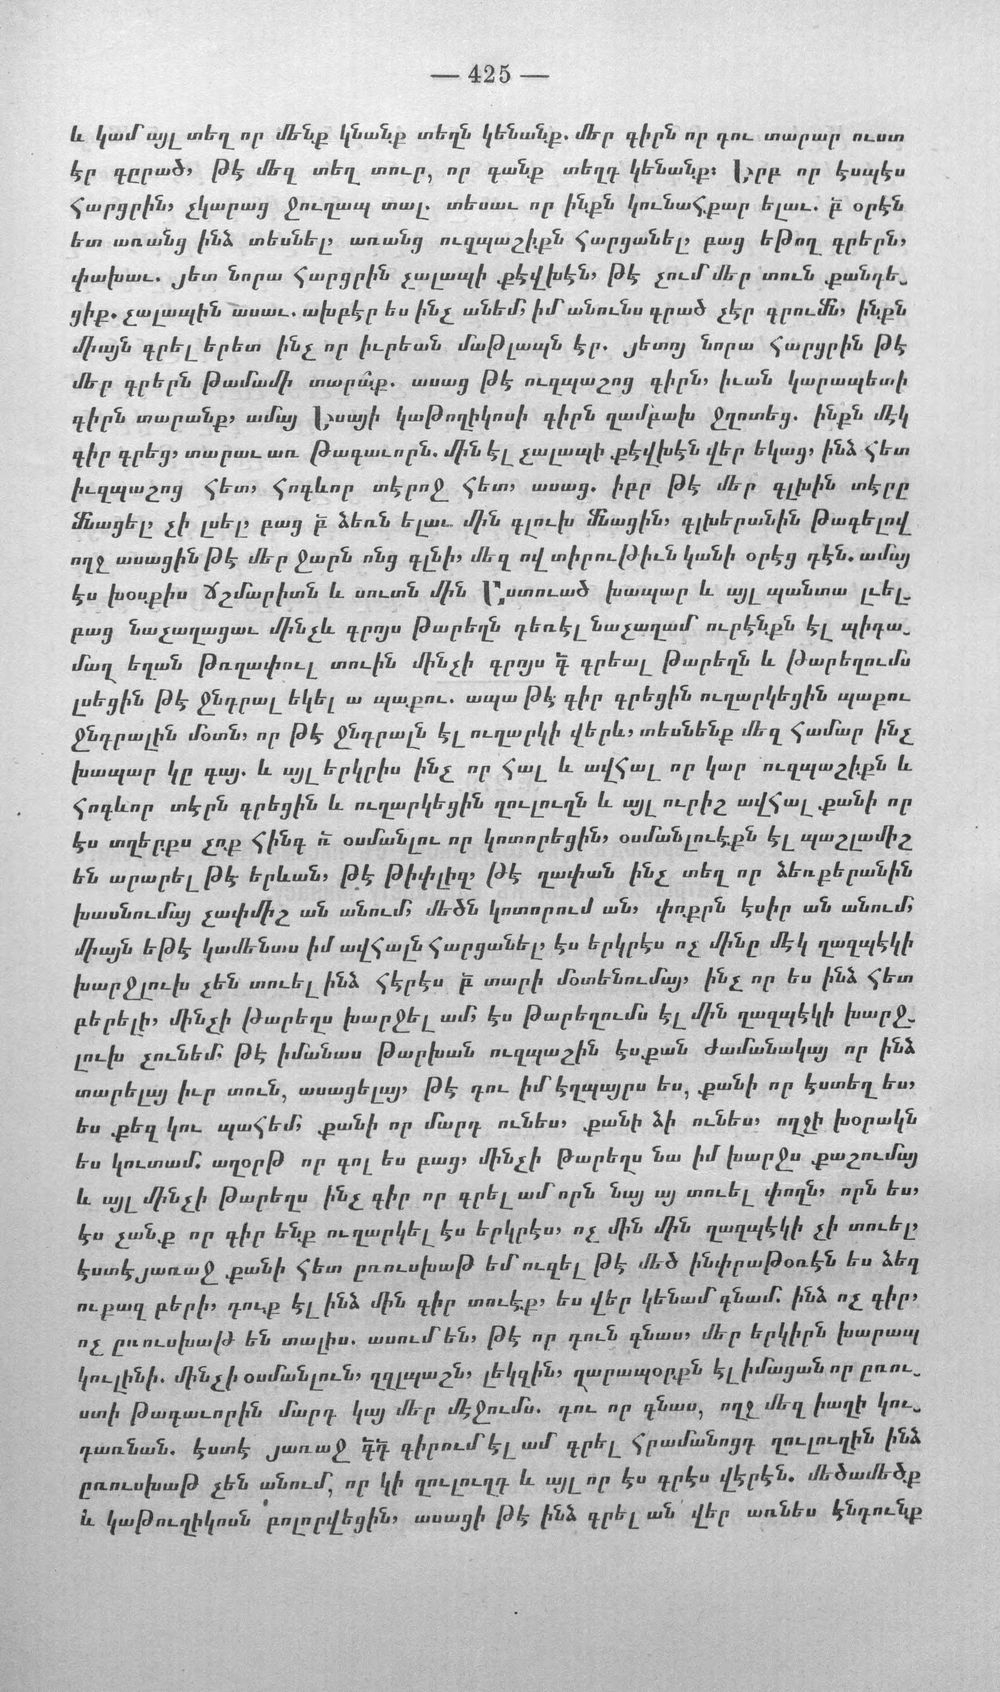 — 425 —
և կամ այլ տեղ որ մենք կնանք տեղն կենանք. մեր գիրն որ դու տարար ուստ
էր գըրած, թէ մեզ տեղ տուր, որ գանք տեղդ կենանք։ Երբ որ էսպէս
հարցրին, չկարաց ջուղապ տալ. տեսաւ որ ինքն կունահքար ելաւ. բ̃ օրէն
ետ առանց ինձ տեսնել, առանց ուզպաշիքն հարցանել, բաց եթող գրերն,
փախաւ. յետ նորա հարցրին չալապի քէվխէն, թէ չում մեր տուն քանդե֊
ցիք. չալապին ասաւ. ախբէր ես ինչ անեմ, իմ անունս գրած չէր գրումն, ինքն
միայն գրել երետ ինչ որ իւրեան մաթլապն էր. յետոյ նորա հարցրին թէ
մեր գրերն թամամի տարա՞ք. ասաց թէ ուզպաշոց գիրն, իւան կարապետի
գիրն տարանք, ամայ Եսայի կաթողիկոսի գիրն ղամբախ ջղոտեց. ինքն մէկ
գիր գրեց, տարաւ առ թագաւորն. մին էլ չալապի քէվխէն վեր եկաց, ինձ հետ
իւզպաշոց հետ, հոգևոր տէրոջ հետ, ասաց. իբր թէ մեր գլխին տէրը
մնացել, չի լսել, բաց բ̃ ձեռն ելաւ մին գլուխ մնացին, գլխերանին թագելով
ողջ ասացին թէ մեր ջարն ոնց գլնի, մեզ ով տիրութիւն կանի օրէց դէն. ամայ
էս խօսքիս ճշմարիտն և սուտն մին Աստուած խապար և այլ պանտա լւել֊
բաց նաչաղացաւ մինչև գրոյս թարեղն դեռէլ նաչաղամ ուրէնքն էլ պիդա֊
մաղ եղան թռղափուլ տուին մինչի գրոյս դ̃ գրեալ թարեղն և թարեղումս
լսեցին թէ ջնդրալ եկել ա պաքու. ապա թէ գիր գրեցին ուղարկեցին պաքու
ջնդրալին մօտն, որ թէ ջնդրալն էլ ուղարկի վերև, տեսնենք մեզ համար ինչ
խապար կը գայ. և այլ երկրիս ինչ որ հալ և ավհալ որ կար ուզպաշիքն և
հոգևոր տէրն գրեցին և ուղարկեցին ղուլուղն և այլ ուրիշ ավհալ քանի որ
էս տղերքս չոք հինգ ռ̃ օսմանլու որ կոտորեցին, օսմանլուէքն էլ պաշլամիշ
են արարել թէ երևան, թէ թիփլիզ, թէ ղափան ինչ տեղ որ ձեռքերանին
խասնումայ չափմիշ ան անում, մեծն կոտորում ան, փոքրն էսիր ան անում,
միայն եթէ կամենաս իմ ավհալն հարցանել, էս երկրէս ոչ մինը մէկ ղազպէկի
խարջլուխ չեն տուել ինձ հէրէս բ̃ տարի մօտենումայ, ինչ որ ես ինձ հետ
բերելի, մինչի թարեղս խարջել ամ, էս թարեղումս էլ մին ղազպէկի խարջ֊
լուխ չունեմ, թէ իմանաս թարխան ուզպաշին էսքան ժամանակայ որ ինձ
տարելայ իւր տուն, ասացելայ, թէ դու իմ էղպայրս ես, քանի որ էստեղ ես,
ես քեզ կու պահեմ, քանի որ մարդ ունես, քանի ձի ունես, ողջի խօրակն
ես կուտամ. աղօրթ որ գոլ ես բաց, մինչի թարեղս նա իմ խարջս քաշումայ
և այլ մինչի թարեղս ինչ գիր որ գրել ամ որն նայ այ տուել փողն, որն ես,
էս չանք որ գիր ենք ուղարկել էս երկրէս, ոչ մին մին ղազպէկի չի տուել,
էստէյառաջ քանի հետ ըռուսխաթ եմ ուզել թէ մեծ ինփրաթօռէն ես ձեզ
ուքազ բերի, դուք էլ ինձ մին գիր տուէք, ես վեր կենամ գնամ. ինձ ոչ գիր,
ոչ ըռուսխաթ են տալիս. ասում են, թէ որ դուն գնաս, մեր երկիրն խարապ
կուլինի. մինչի օսմանլուն, ղզլպաշն, լեկզին, ղարապօրքն էլ իմացան որ ըռու֊
ստի թագաւորին մարդ կայ մեր մէջումս. դու որ գնաս, ողջ մեզ խաղի կու֊
դառնան. էստէ յառաջ դ̃դ̃ գիրում էլ ամ գրել հրամանոցդ ղուլուղին ինձ
ըռուսխաթ չեն անում, որ կի ղուլուղդ և այլ որ էս գրէս վէրէն. մեծամեծք
և կաթուղիկոսն բոլորվեցին, ասացի թէ ինձ գրել ան վեր առնես էնդունք